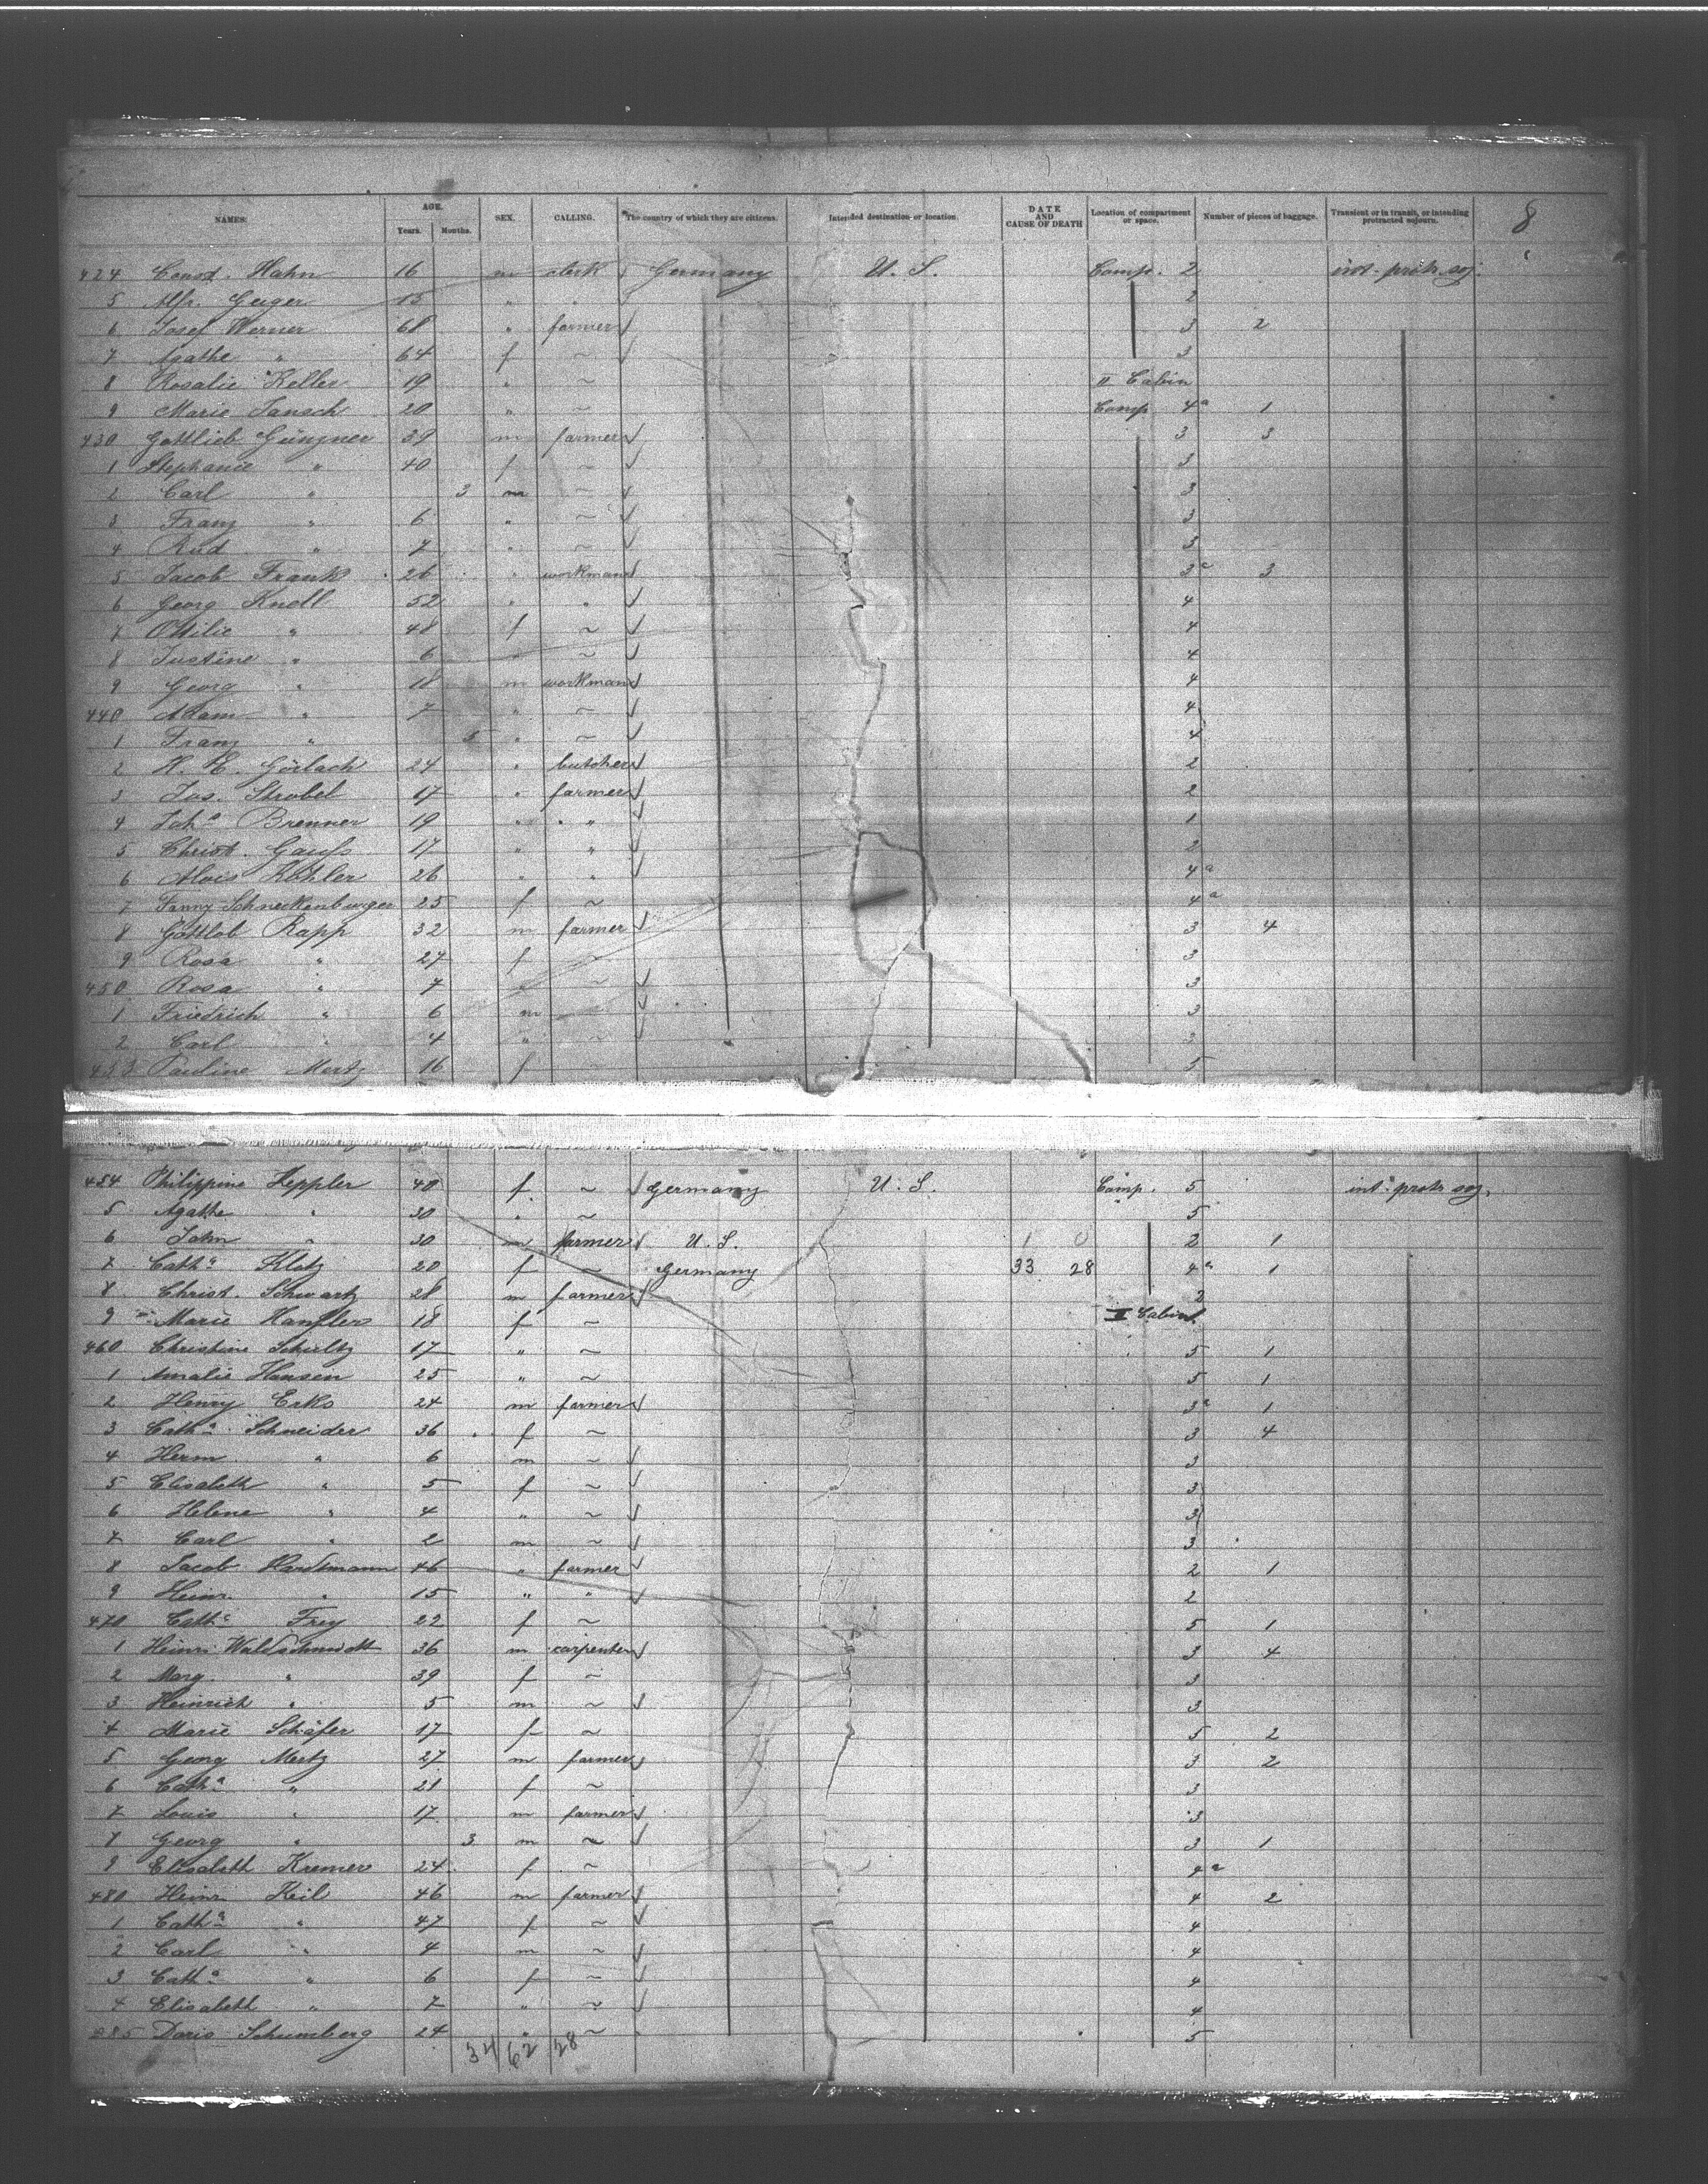 8
NAMES. AGE. Years. Months. SEX. CALLING. The country of which they are citizens. Intended destination or location. DATE AND CAUSE OF DEATH Location of compartment or space. Number of pieces of baggage. Transient or in transit, or intending protracted sojourn.
424 Const. Hahn 16 m clerk Germany U. S. Comp. 2 int. protr. soj.
5 Alfr. Geiger 15 " " 2
6 Josef Werner 68 " farmer 3 2
7 Agathe " 64 f ~ 3
8 Rosalie Keller 19 " ~ II Cabin
9 Marie Jansch 20 " ~ Comp. 4a 1
430 Gottlieb Güngner 39 m farmer 3 3
1 Stephanie " 40 f ~ 3
2 Carl " 3 m ~ 3
3 Franz " 6 " ~ 3
4 Rud " 7 " ~ 3
5 Jacob Frank 26 " workman 3a 3
6 Georg Knoll 52 " " 4
7 Ottilie " 48 f ~ 4
8 Justine " 6 " ~ 4
9 Georg " 18 m workman 4
440 Adam " 7 " ~ 4
1 Franz " 5 " ~ 4
2 H. E. Görlach 24 " butcher 2
3 Jos. Strobel 17 " farmer 2
4 Joha Brenner 19 " " 1
5 Christ. Gauss 17 " " 2
6 Alois Köhler 26 " " 4a
7 Fanny Schneckenburger 25 f ~ 4a
8 Gottlob Rapp 32 m farmer 3 4
9 Rosa " 27 f ~ 3
450 Rosa " 7 " ~ 3
1 Friedrich " 6 m ~ 3
2 Carl " 4 " ~ 3
453 Pauline Mertz 16 f 5
454 Philippine Keppler 40 f ~ Germany U. S. Comp. 5 inta protr soj.
5 Agathe " 30 " ~ 5
6 John " 30 m farmer U. S. 1 0 2 1
7 Catha Klotz 20 f ~ Germany 33 28 4a 1
8 Christ. Schwartz 28 m farmer 2
9 Marie Hanfler 18 f ~ II Cabin
460 Christine Schultz 17 " ~ 5 1
1 Amalie Hansen 25 " ~ 5 1
2 Henry Erks 24 m farmer 3a 1
3 Catha Schneider 36 f ~ 3 4
4 Herm " 6 m ~ 3
5 Elisabeth " 5 f ~ 3
6 Helene " 4 " ~ 3
7 Carl " 2 m ~ 3
8 Jacob Hardtmann 46 " farmer 2 1
9 Heinr. " 15 " " 2
470 Catha Frey 22 f ~ 5 1
1 Heinr. Waldschmidt 36 m carpenter 3 4
2 Marg. " 39 f ~ 3
3 Heinrich " 5 m ~ 3
4 Marie Schäfer 17 f ~ 5 2
5 Georg Mertz 27 m farmer 3 2
6 Catha " 21 f ~ 3
7 Louis " 17 m farmer 3
8 Georg " 3 m ~ 3 1
9 Elisabeth Kremer 24 f ~ 4a
480 Heinr. Keil 46 m farmer 4 2
1 Catha " 47 f ~ 4
2 Carl " 4 m ~ 4
3 Catha " 6 f ~ 4
4 Elisabeth " 7 " ~ 4
485 Doris Schumberg 24 " ~ 5
34 62 28